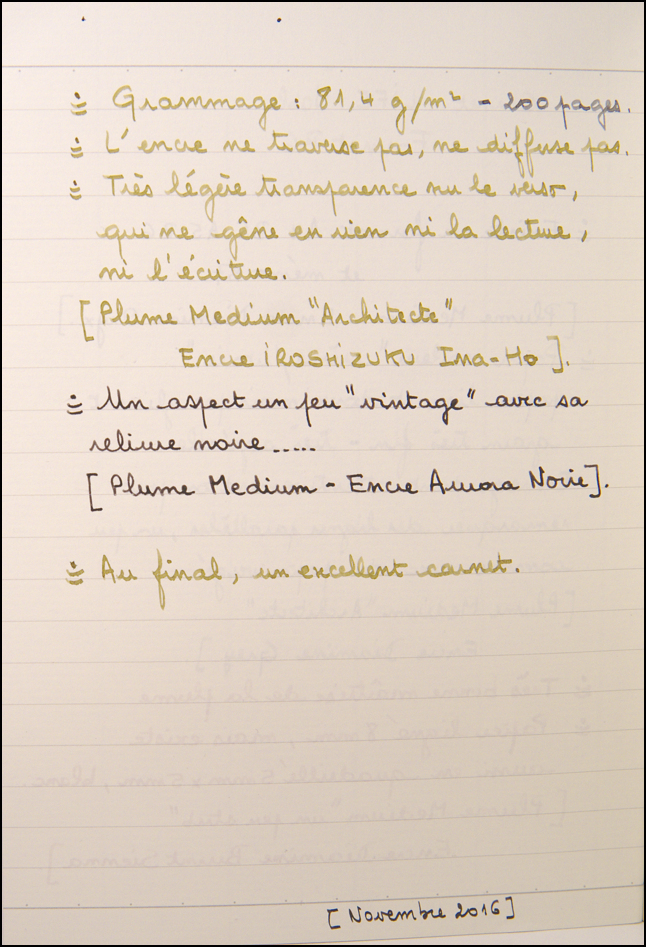 Grammage : 81,4 g/m² - 200 pages.
L'encre ne traverse pas, ne diffuse pas.
Très légère transparence sur le verso,
qui ne gêne en rien ni la lecture,
ni l'écriture.
[ Plume Medium "Architecte"
Encre iROSHiZUKU Ina-Ho ].
Un aspect un peu "vintage" avec sa
reliure noire.....
[ Plume Medium - Encre Aurora Noire ].
Au final, un excellent carnet.
[ Novembre 2016 ]